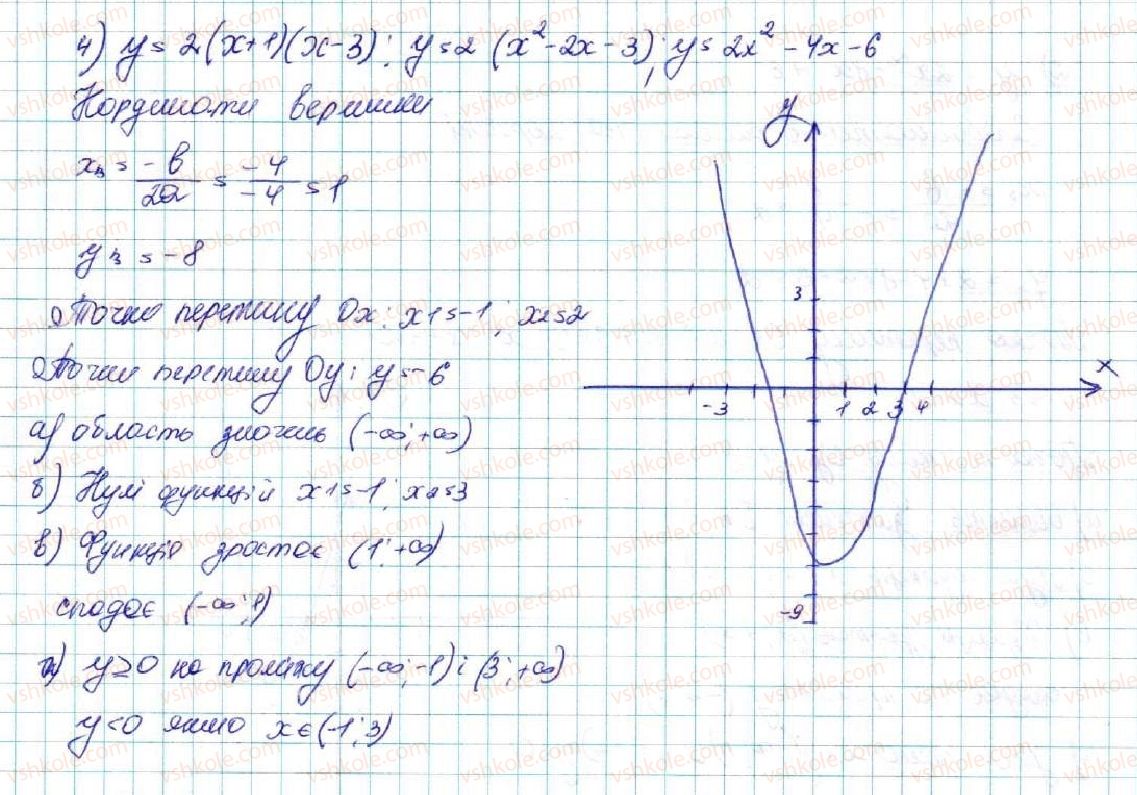 4) y = 2(x+1)(x-3); y = 2(x²-2x-3); y = 2x²-4x-6
Кординати вершини
xв = -b/2a = -4/-4 = 1
yв = -8
Точки перетину Ox: x1 = -1; x2 = 2
Точки перетину Oy: y = -6
а) область значень (-∞; +∞)
б) Нулі функцій x1 = -1; x2 = 3
в) Функція зростає (1; +∞)
спадає (-∞; 1)
y ≥ 0 на проміжу (-∞; -1) і (3; +∞)
y < 0 якшо x ∈ (-1; 3)
y
3
x
-3 1 2 3 4
-9
vshkole.com